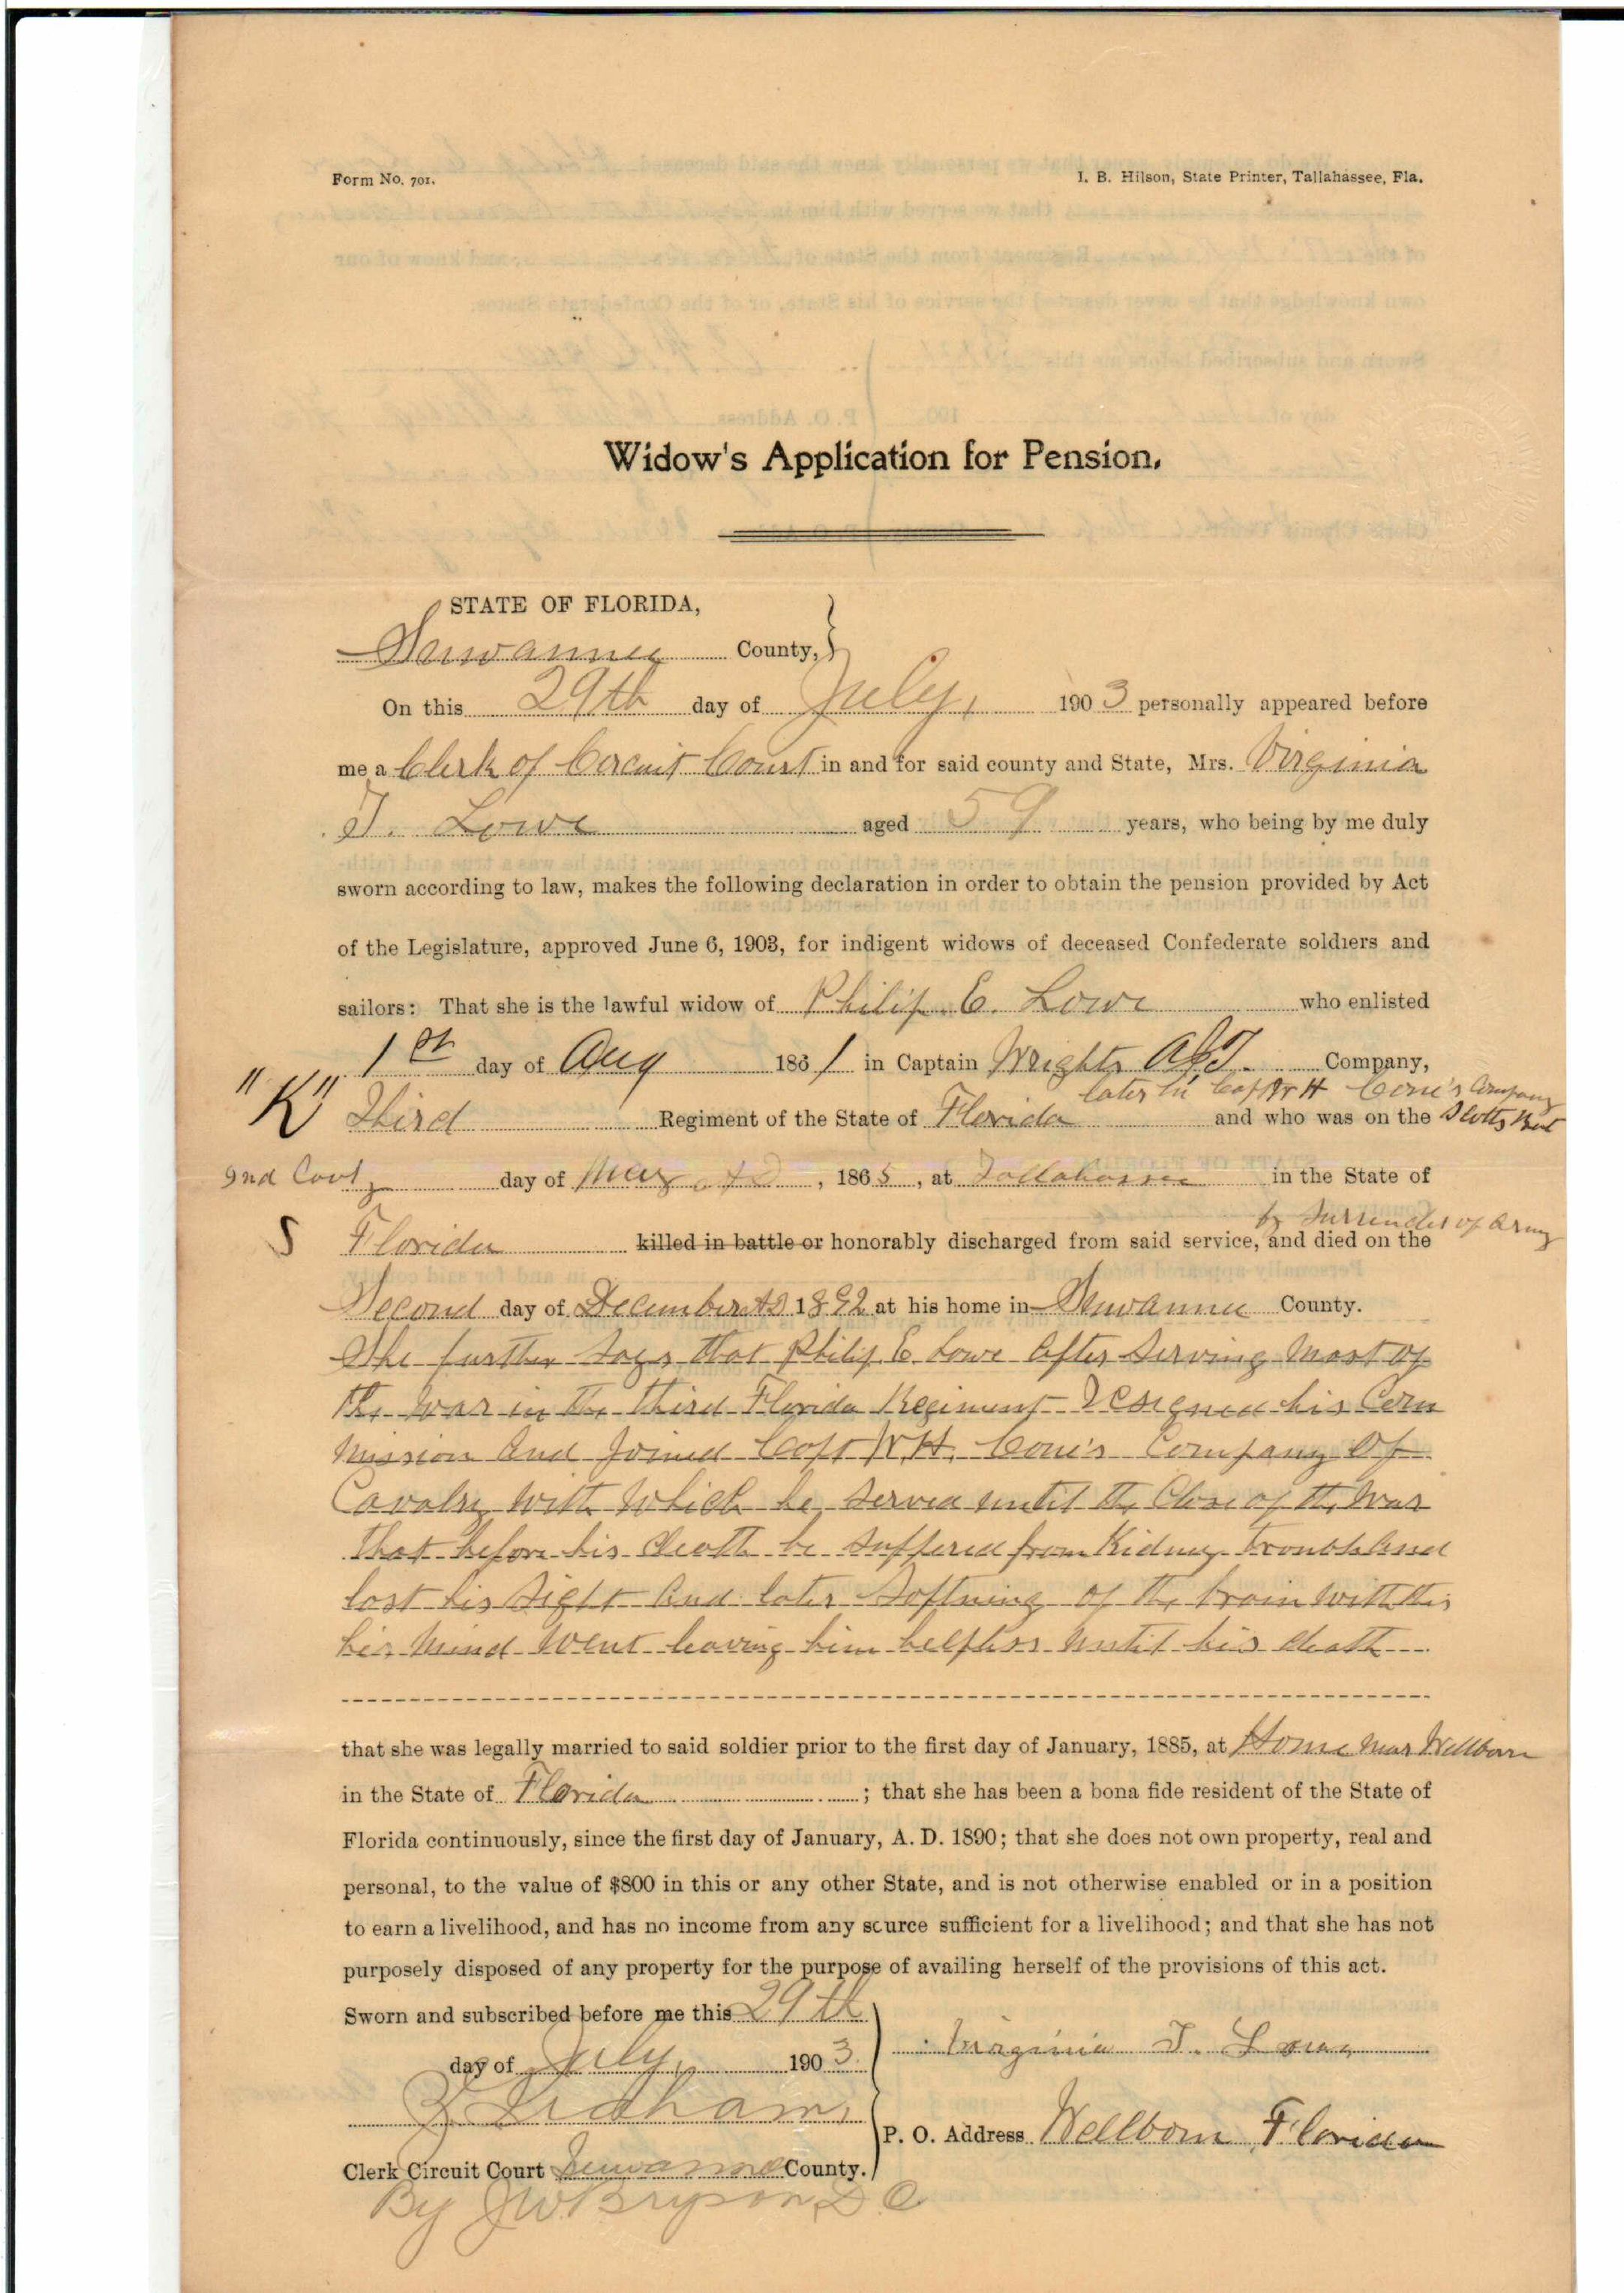 Form No. 701.
I. B. Hilson, State Printer, Tallahassee, Fla.
Widow's Application for Pension.
STATE OF FLORIDA,
Suwannee County,
On this 29th day of July, 1903 personally appeared before
me a Clerk of Circuit Court in and for said county and State, Mrs. Virginia
T. Lowe aged 59 years, who being by me duly
sworn according to law, makes the following declaration in order to obtain the pension provided by Act
of the Legislature, approved June 6, 1903, for indigent widows of deceased Confederate soldiers and
sailors: That she is the lawful widow of Philip E. Lowe who enlisted
1st day of Aug 1861 in Captain Wrights Company,
later in Capt W H Cone's Company
"K" Third Regiment of the State of Florida and who was on the Scotts Bat
day of May AD, 1865, at Tallahassee in the State of
by Surrender of Army
Florida killed in battle or honorably discharged from said service, and died on the
Second day of December AD 1892 at his home in Suwannee County.
She further says that Philip E Lowe After Serving Most of
the war in the third Florida Regiment resigned his Com
mission And Joined Capt W.H. Cone's Company Of
Cavalry with which he served until the Close of the war
that before his death he suffered from Kidney trouble And
lost his Sight And later Softning of the brain with this
his Mind Went leaving him helpless until his death
that she was legally married to said soldier prior to the first day of January, 1885, at Home near Wellborn
in the State of Florida ; that she has been a bona fide resident of the State of
Florida continuously, since the first day of January, A. D. 1890; that she does not own property, real and
personal, to the value of $800 in this or any other State, and is not otherwise enabled or in a position
to earn a livelihood, and has no income from any source sufficient for a livelihood; and that she has not
purposely disposed of any property for the purpose of availing herself of the provisions of this act.
Sworn and subscribed before me this 29th
day of July, 1903
Virginia T. Lowe
Clerk Circuit Court Suwannee County.
P. O. Address Wellborn Florida
By J W Bryson D C